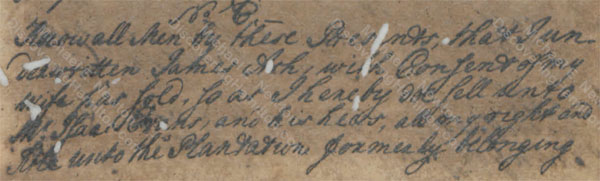 No. 6
Know all Men by these Presents, that I un-
derwritten James Ash, with Consent of my
wife has sold, so as I hereby doe sell unto
Mr. Isaac and his heirs, all my right and
Title unto the Plantation formerly belonging